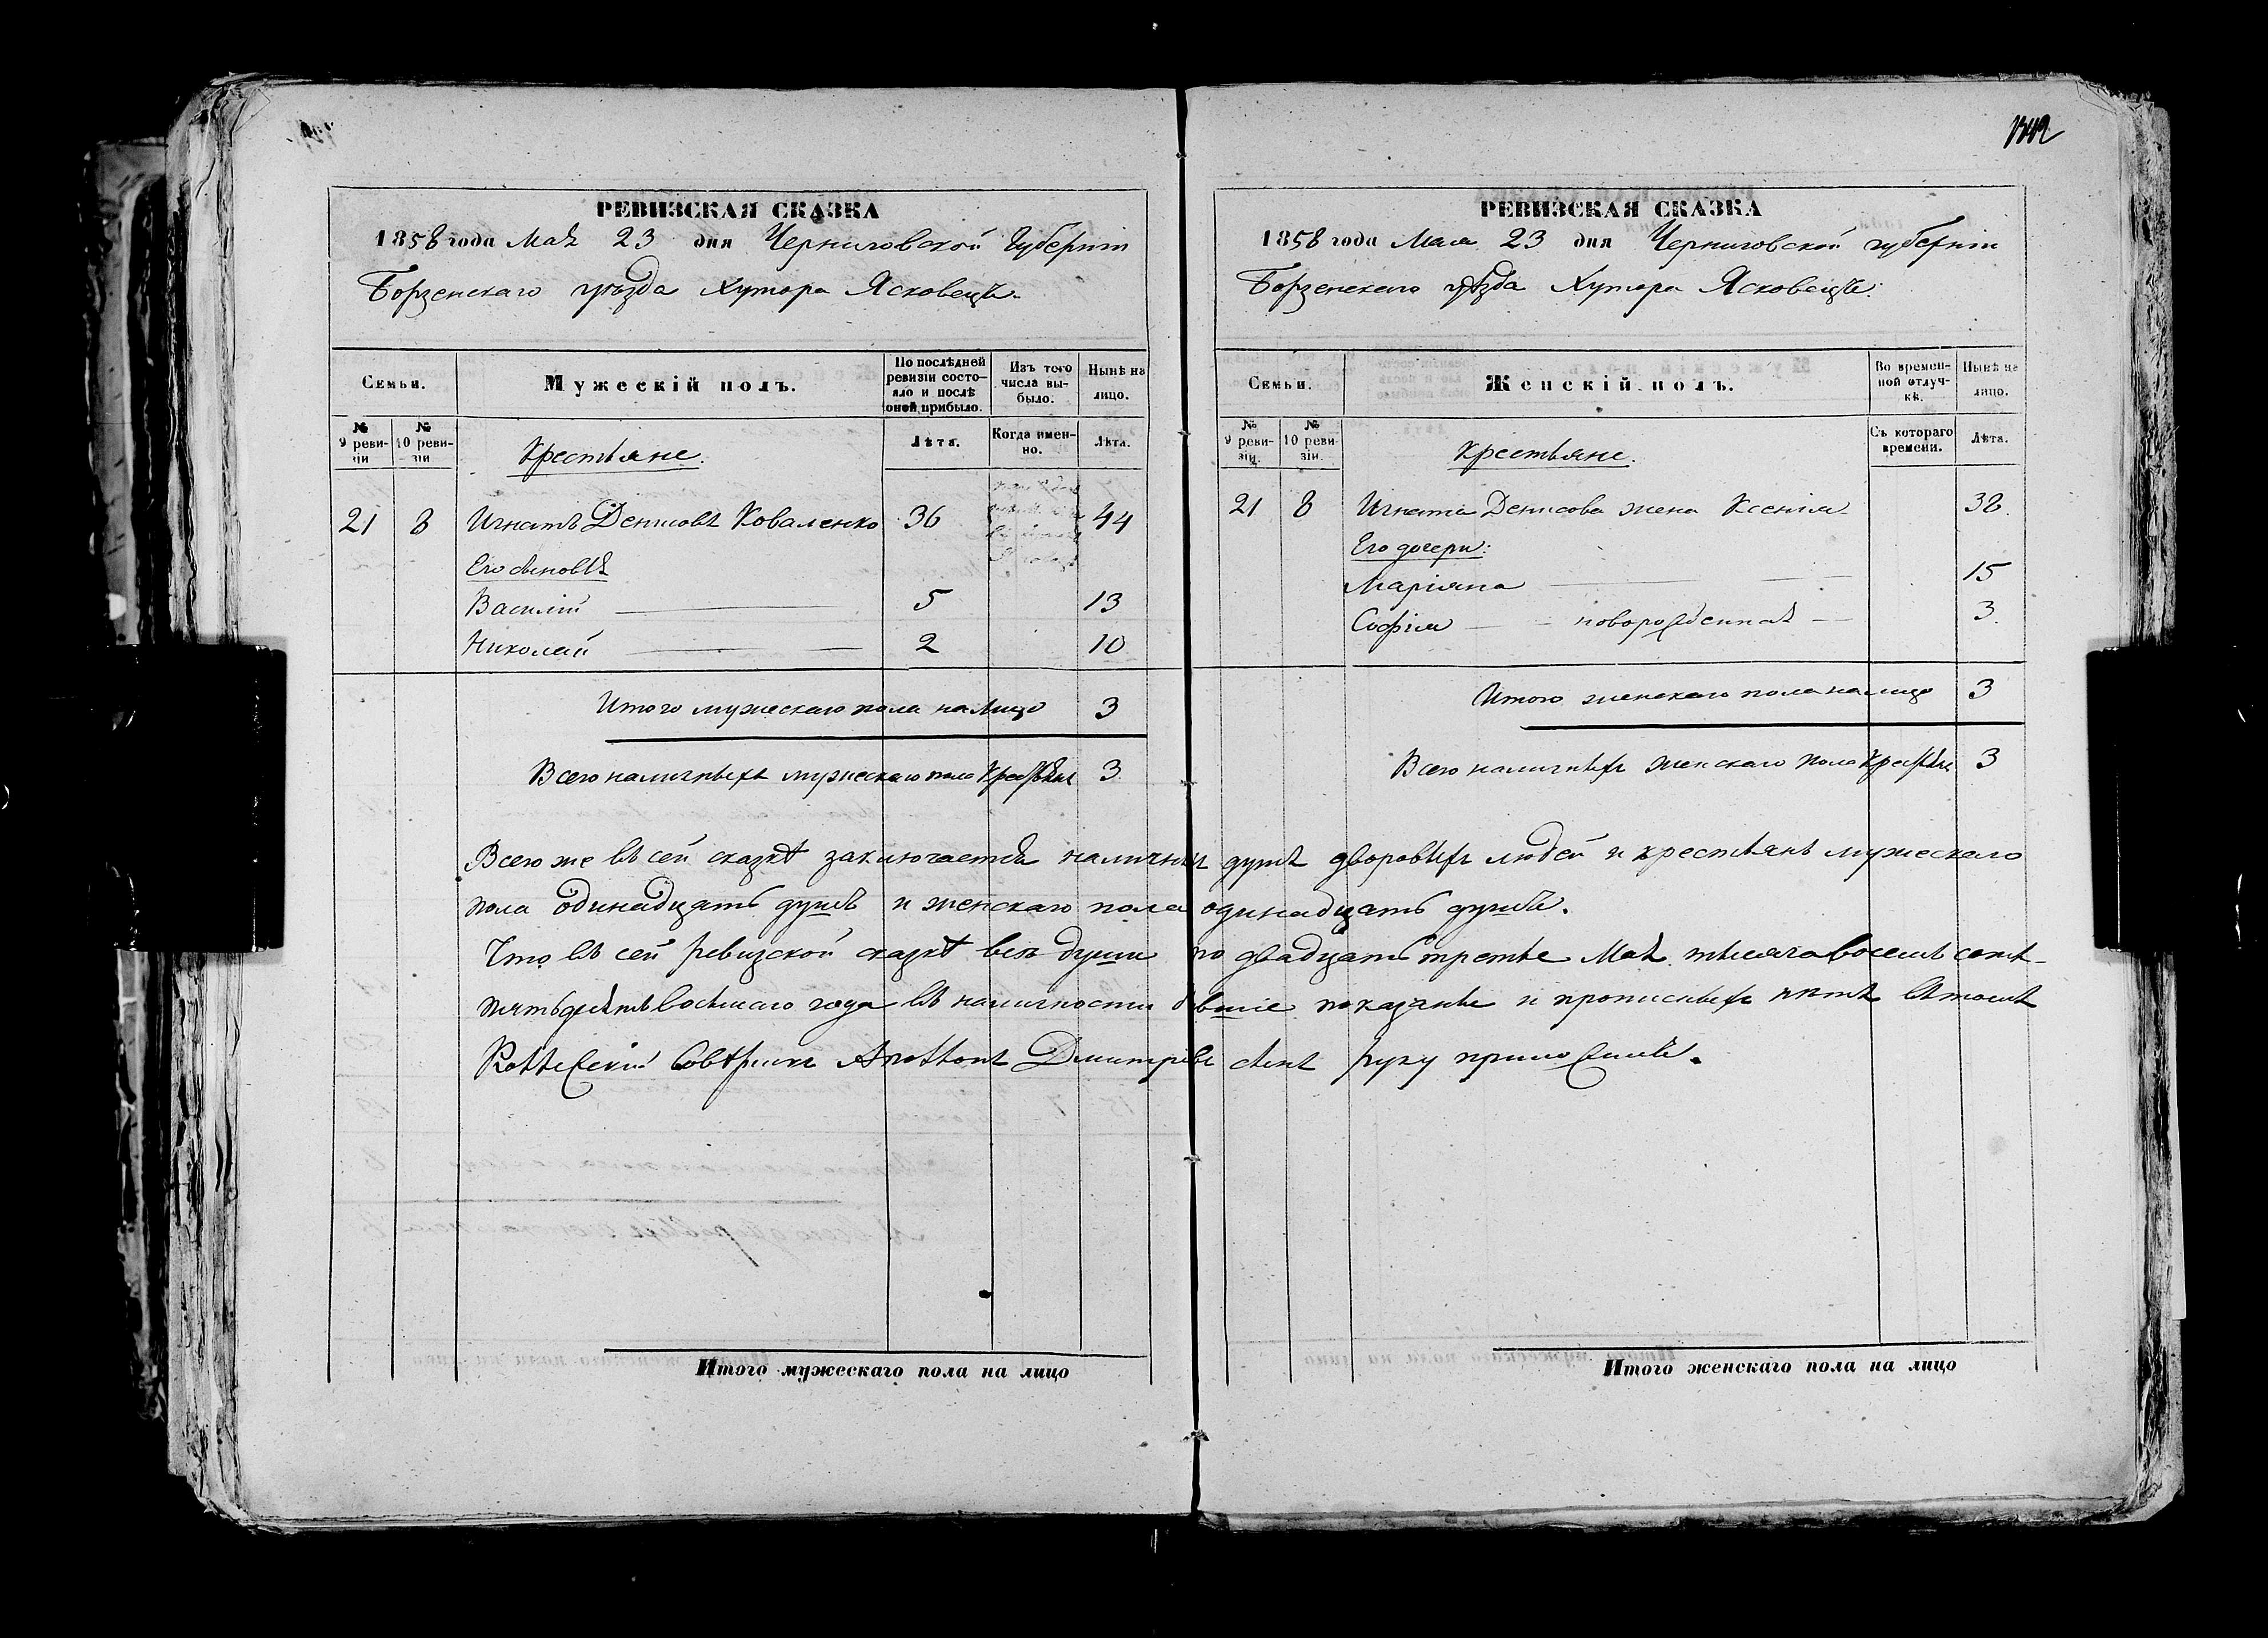 1342
РЕВИЗСКАЯ СКАЗКА
1858 года Мая 23 дня Черниговской Губерніи
Борзенскаго уѣзда Хутора Ясковецъ
Семьи.
Мужескій полъ.
По послѣдней ревизіи состояло и послѣ оной прибыло.
Изъ того числа выбыло.
Нынѣ на лицо.
№ 9 ревизіи
№ 10 ревизіи
Крестьяне.
Лѣта.
Когда именно.
Лѣта.
21 8 Игнатъ Денисовъ Коваленко 36 44
Его сыновья
Василій 5 13
Николай 2 10
Итого мужескаго пола на лицо 3
Всего наличныхъ мужескаго пола крестьянъ 3
РЕВИЗСКАЯ СКАЗКА
1858 года Мая 23 дня Черниговской губерніи
Борзенскаго уѣзда Хутора Ясковецъ.
Семьи.
Женскій полъ.
Во временной отлучкѣ.
Нынѣ на лицо.
№ 9 ревизіи.
№ 10 ревизіи.
Крестьяне.
Съ котораго времени.
Лѣта.
21 8 Игната Денисова жена Ксенія 38.
Его дочери:
Маріяна 15
Софія новорожденная 3.
Итого женскаго пола на лицо 3
Всего наличныхъ женскаго пола крестьянъ 3
Всего же въ сей сказкѣ заключается наличныхъ душъ дворовыхъ людей и крестьянъ мужескаго
пола одинадцать душъ и женскаго пола одинадцать душъ.
Что въ сей ревизской сказкѣ всѣ души по двадцать третье Мая тысяча восемь сотъ
пятьдесятъ восьмаго года въ наличности бывшіе показаны и прописныхъ нѣтъ въ томъ
Дмитріевъ сынъ руку приложилъ.
Итого мужескаго пола на лицо
Итого женскаго пола на лицо